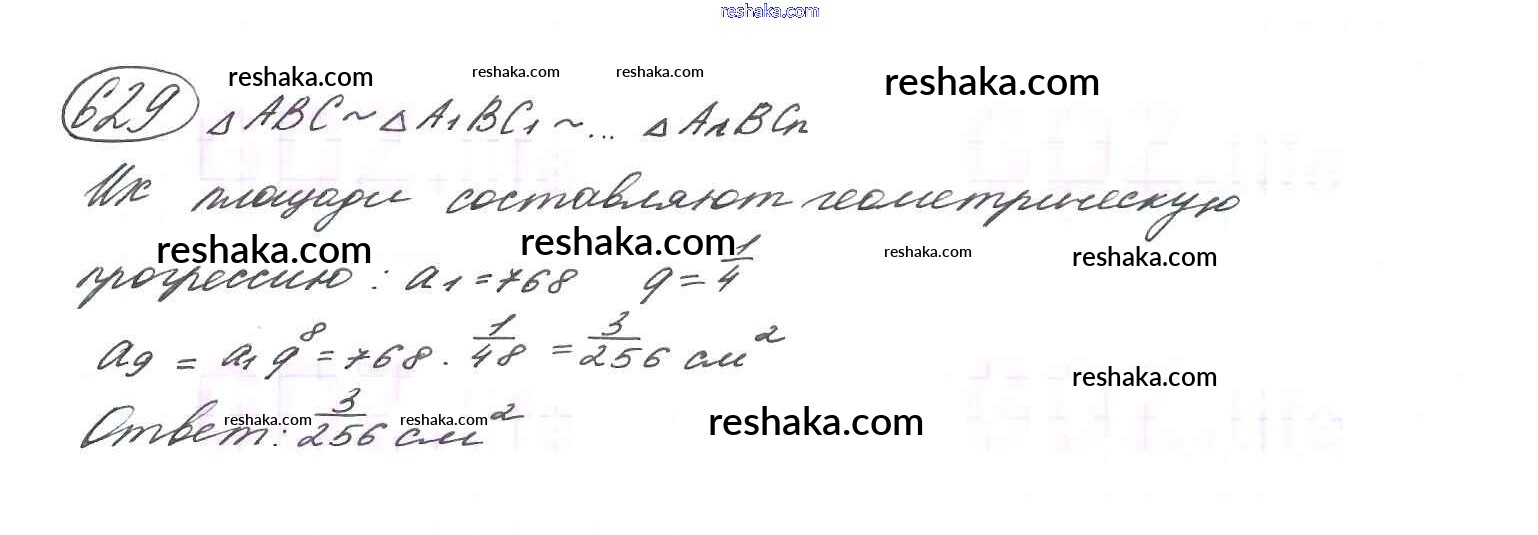 reshaka.com
reshaka.com reshaka.com reshaka.com reshaka.com
629 Δ ABC ~ Δ A₁BC₁ ~ ... Δ AnBCn
Их площади составляют геометрическую
reshaka.com reshaka.com reshaka.com reshaka.com
прогрессию: a₁ = 768 q = 1/4
a₉ = a₁ q⁸ = 768 · 1/48 = 3/256 см²
reshaka.com
Ответ: 3/256 см²
reshaka.com reshaka.com reshaka.com